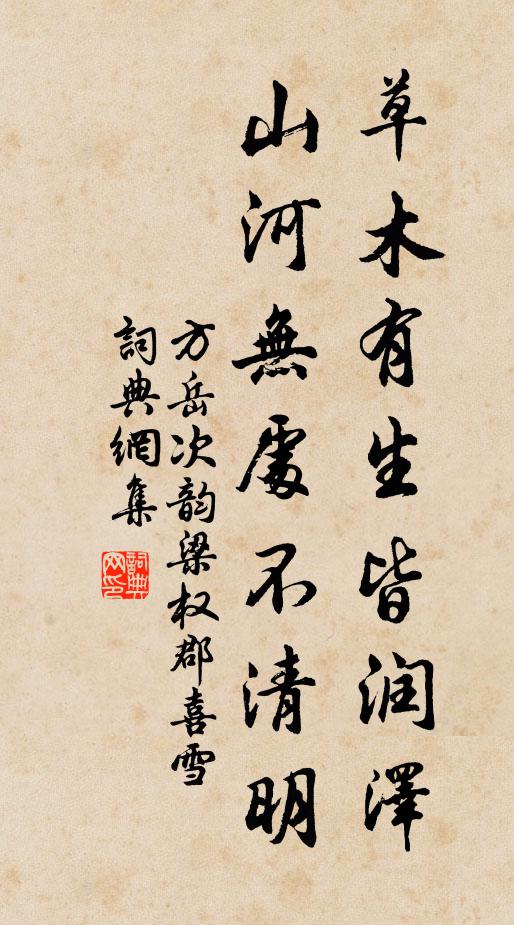 草木有生皆润澤
山河無處不清明
方岳次韵梁权郡喜雪
詞典網集
詞典網印